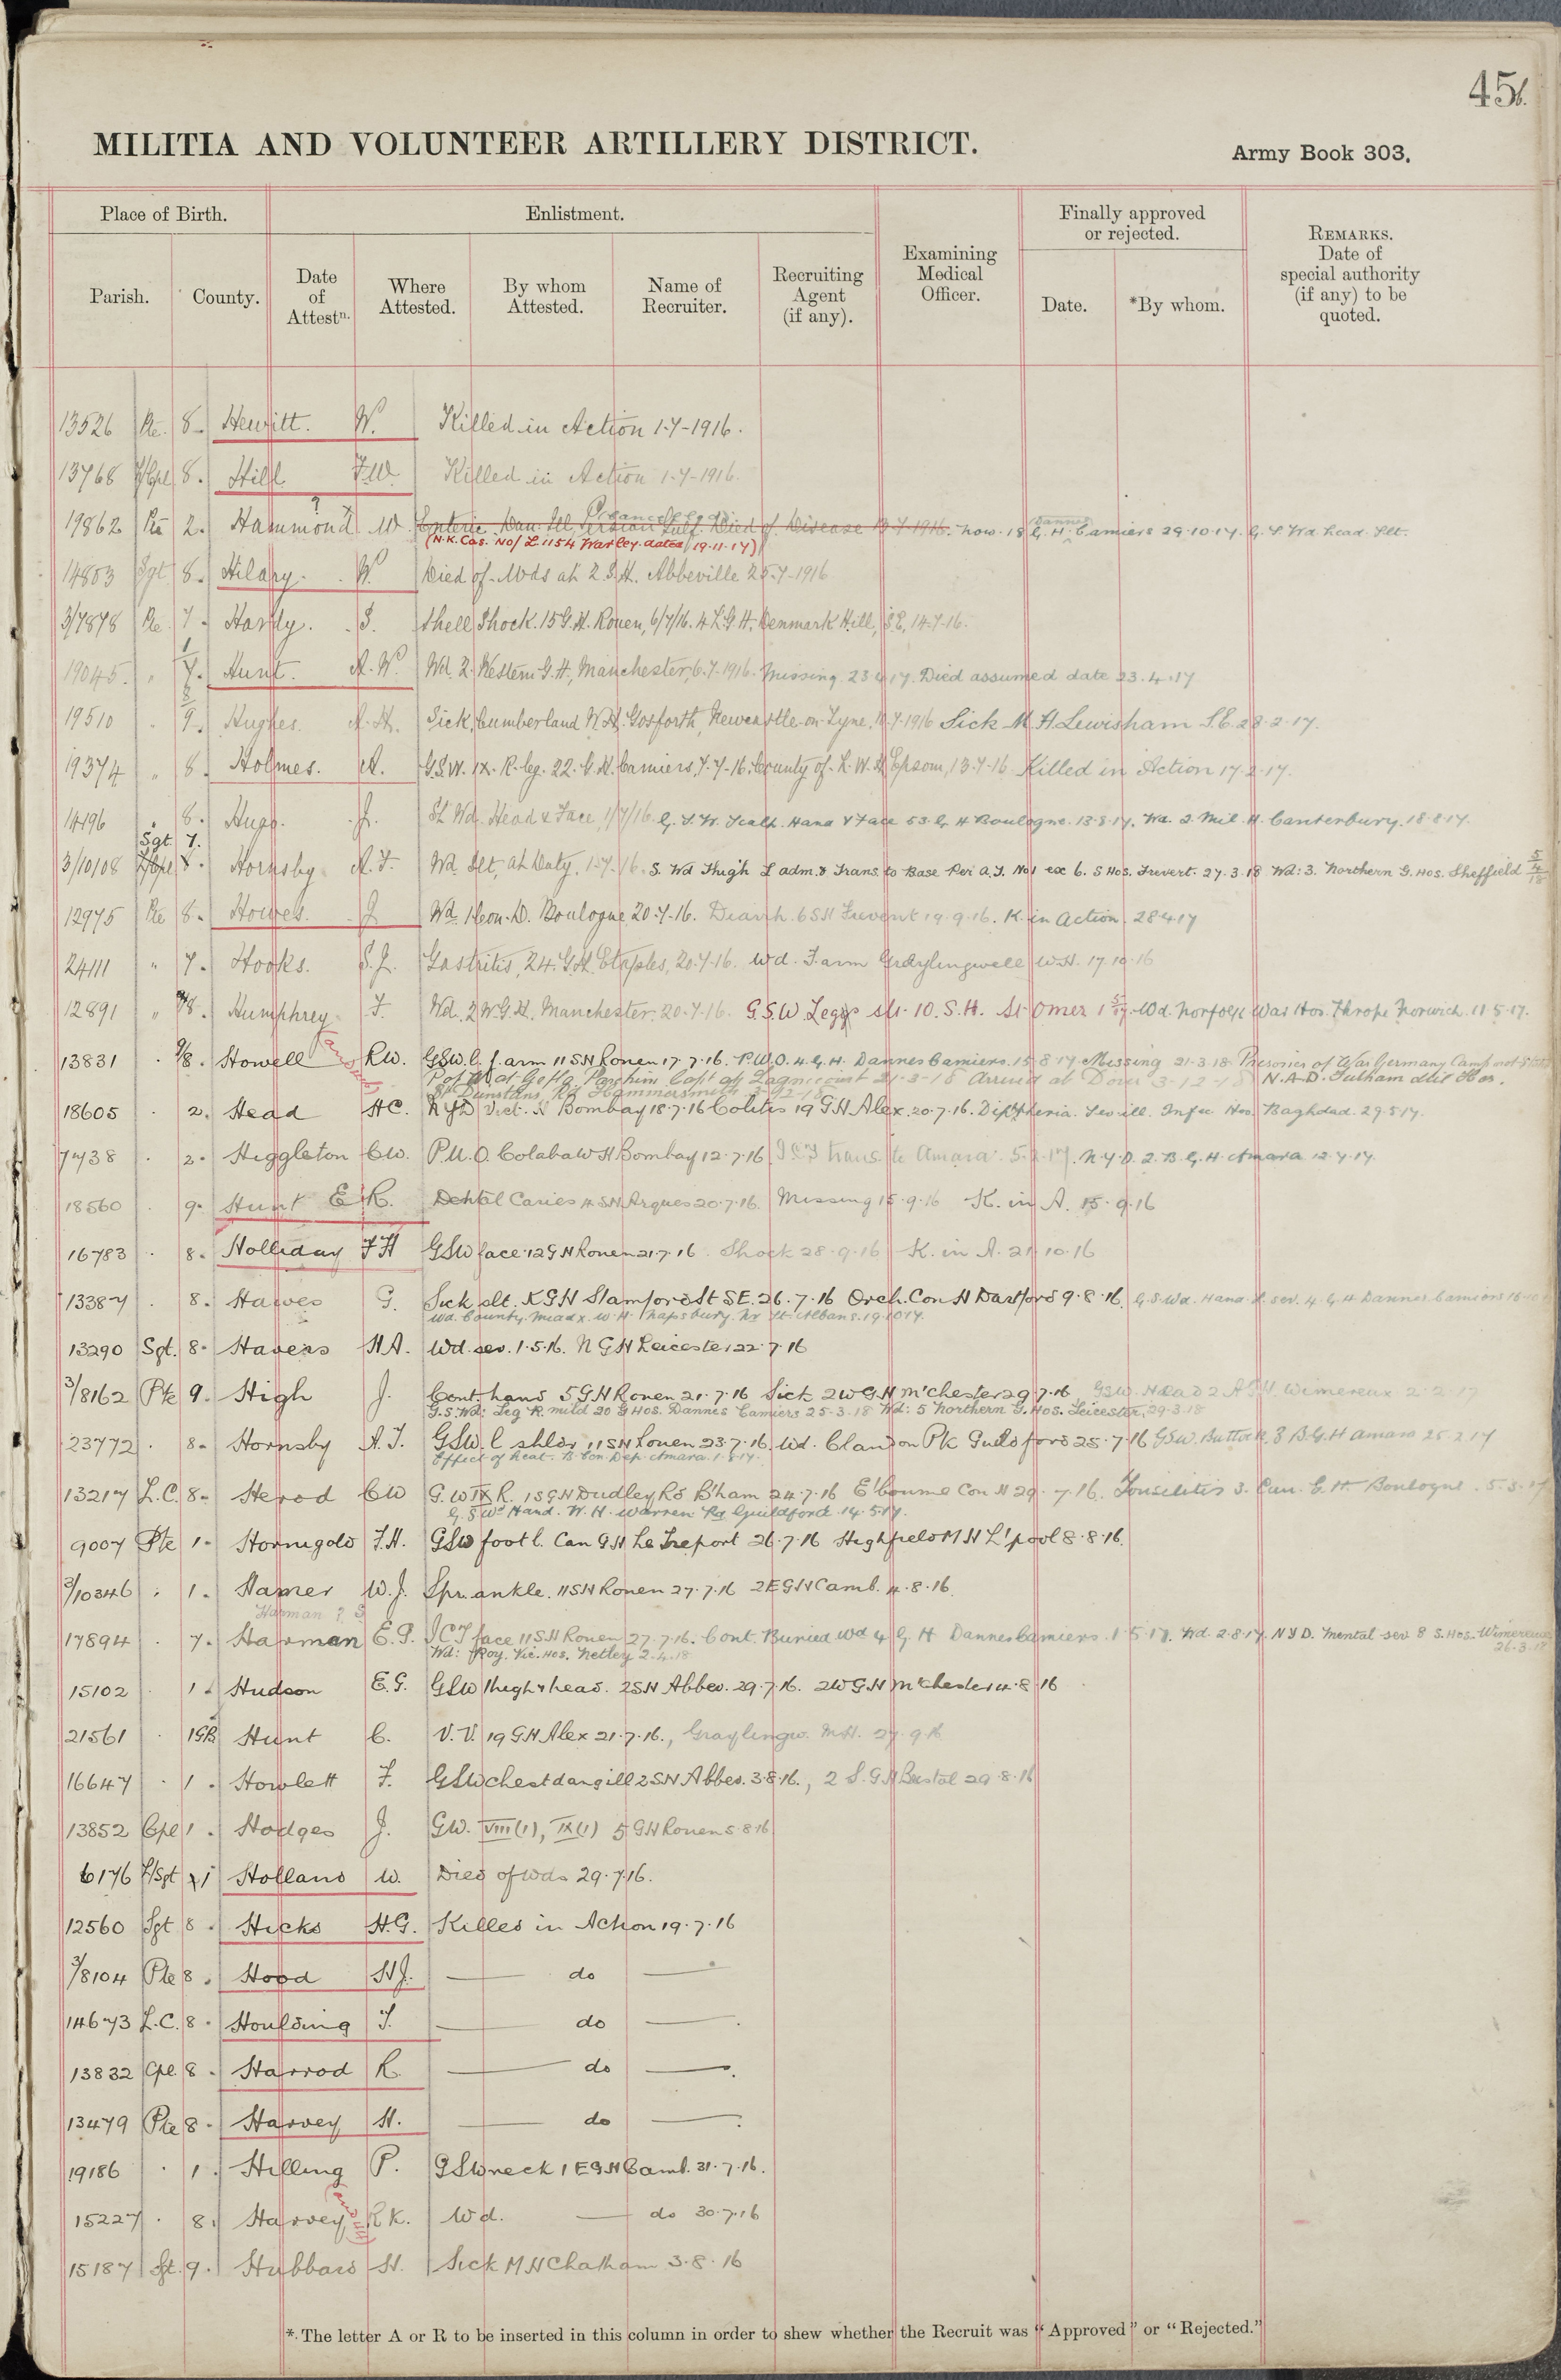 456.
MILITIA AND VOLUNTEER ARTILLERY DISTRICT.
Army Book 303.
Place of Birth. Enlistment. Examining Medical Officer. Finally approved or rejected. REMARKS. Date of special authority (if any) to be quoted.
Parish. County. Date of Attestn. Where Attested. By whom Attested. Name of Recruiter. Recruiting Agent (if any). Date. *By whom.
13526 Pte. 8. Hewitt. W. Killed in Action 1-7-1916.
13768 L/Cpl 8. Hill F.W. Killed in Action 1-7-1916.
Cancelled
19862 Pte 2. Hammond ? W. Enteric Dan: Ill Persian Gulf. Died of Disease 1916. now. 18 G. H. Dannes Camiers 29.10.17. G. S. Wd head Slt.
(N.K. Cas. No/ L 1154 Warley dated 19.11.17)
14803 Sgt 8. Hilary. W. Died of Wds at 2.S.H. Abbeville 25-7-1916
3/7878 Pte. 7. Hardy. S. Shell Shock. 15 G.H. Rouen, 6/7/16. 4 L.G.H. Denmark Hill, S.E, 14.7.16.
19045. " 7. Hunt. A.W. Wd. 2. Western G.H., Manchester, 6.7.1916. Missing 23 4 17. Died assumed date 23.4.17
19510 . 9. Hughes. A.H. Sick, Cumberland W.H. Gosforth, Newcastle-on-Tyne, 7.1916 Sick M.H. Lewisham S.E. 28.2.17.
19374 " 8. Holmes. A. G.S.W. IX. R. leg. 22. G.H. Camiers, 7.7-16. County of L. W.H. Epsom, 13.7-16 Killed in Action 17.2.17.
14196 " 8. Hugg. J. Sh. Wd. Head & Face, 1/7/16. G. S. W. Scalp. Hand & Face 53. G. H Boulogne. 13.8.17. Wd. 2. Mil. H. Canterbury. 18.8.17.
Sgt 7.
3/10108 L/Cpl 8. Hornsby A.F. Wd. Slt, at Duty. 1-7-16. S. Wd Thigh L adm. & Trans. to Base Per A.T. No 1 ex 6. S Hos. Frevent. 27.3.18 Wd: 3. Northern G. Hos. Sheffield 5/4/18
12975 Pte 8. Howes. J Wd. 1 Con. D. Boulogne 20.7-16. Diarrh. 6 S H Frevent 19.9.16. K. in Action. 28 4 17
24111 " 7. Hooks. S.J. Gastritis, 24. G.H. Etaples, 20.7-16. Wd. F.arm Graylingwell W.H. 17.10.16
12891 " 8. Humphrey F. Wd. 2 W.G.H. Manchester. 20.7-16. G.S.W Legs slt. 10. S.H. St. Omer 1 Wd. Norfolk War Hos. Thrope Norwich. 11.5.17.
13831 . 9/8. Howell R.W. GSW l. f. arm 11 S H Rouen 17.7.16. P.W.O. 4. G. H. Dannes Camiers. 15.8.17 Missing 21-3-18 Prisonier of War Germany Camp not stated
P of W at Parchim Capt at Lagnicourt 21-3-18 Arrived at Dover 3-12-18 N.A.D. Fulham Mil Hos.
St Dunstans, Rd Hammersmith 3-12-18
18605 . 2. Head H.C. N Y D Vict. H Bombay 18.7.16 Colitis 19 G H Alex. 20.7.16. Diptheria. Ser ill. Infec Hos. Baghdad. 29.5.17.
7438 . 2. Higgleton C.W. P.U.O. Colaba W H Bombay 12.7.16 I.C.T trans. to Amara. 5. 17. N.Y.D. 2. B. G. H. Amara 12.7.17
18560 . 9. Hunt E.R. Dental Caries 4 S H Arques 20.7.16. Missing 15.9.16 K. in A. 15.9.16
16783 . 8. Holliday F.H GSW face 12 G H Rouen 21.7.16. Shock 28.9.16 K. in A. 21.10.16
13387 . 8. Hawes G. Sick slt. K G H Stamford St S.E. 26.7.16 Orch. Con H Dartford 9.8.16. G. S. Wd. Hand R. sev. 4. G. H. Dannes Camiers
Wd. County. Middx. W.H. Napsbury. Nr St. Albans. 19.10.17.
13290 Sgt. 8. Havers H A. Wd. sev. 1.5.16. N G H Leicester 22.7.16
3/8162 Pte 9. High J. Cont. hand 5 G H Rouen 21.7.16 Sick 2 W G H M'chester 29.7.16 GSW. Head 2 A G H Wimereux 2.2.17
G.S. Wd: Leg R. mild 20 G Hos. Dannes Camiers 25.3.18 Wd: 5 Northern G. Hos. Leicester, 29.3.18
23772 . 8. Hornsby A.T. GSW. l shldr 11 S H Rouen 23.7.16. Wd. Clandon Pk Guildford 25.7.16 GSW. Buttock 3 B.G.H Amara 25.2.17
Effect of heat. B. Con. Dep. Amara.
13217 L.C. 8. Herod C W G.W IX R. 1 S G H Dudley Rd B'ham 24.7.16 E'bourne Con H 29.7.16. Tonsilitis 3. Can. G. H. Boulogne. 5.3.17
G. S. W Hand. W.H. Warren Rd Guildford. 14.5.17.
9007 Pte 1. Hornigold F.H. GSW foot l. Can G H Le Treport 26.7.16 Highfield M H L'pool 8.8.16.
3/10346 . 1. Hamer W.J. Spr. ankle. 11 S H Rouen 27.7.16 2 E G H Camb. 4.8.16.
Harman ? S
17894 . 7. Harman E.G. I C T face 11 S H Rouen 27.7.16. Cont. Buried Wd 4 G H Dannes Camiers. 1.5.17. Wd. 2.8.17. N Y D. Mental sev 8 S. Hos. Wimereux 26.3.18
Wd: Roy. Vic. Hos. Netley 2.4.18
15102 . 1. Hudson E.G. GSW thigh & head. 2 S H Abbev. 29.7.16. 2 W G H M'chester 4.8.16
21561 . 1GB Hunt C. V.V. 19 G H Alex 21.7.16., Graylingw. 27.9.16
16647 . 1. Howlett F. GSW chest dang ill 2 S H Abbev. 3.8.16., 2 S. G H Bristol 29.8.16
13852 Cpl 1. Hodges J. GW. VIII (1), IX (1) 5 G H Rouen 5.8.16
6176 L/Sgt 1 Holland W. Died of wds 29.7.16.
12560 Sgt 8. Hicks H.G. Killed in Action 19.7.16
3/8104 Pte 8. Hood H J. — do —
14673 L.C. 8. Houlding T. — do —
13832 Cpl. 8. Harrod R. — do —
13479 Pte 8. Harvey H. — do —
19186 . 1. Hilling P. G S W neck 1 E G H Camb. 31.7.16.
15227 . 8. Harvey R K. Wd. — do 30.7.16
15187 Sgt. 9. Hubbard H. Sick M H Chatham 3.8.16
*. The letter A or R to be inserted in this column in order to shew whether the Recruit was "Approved" or "Rejected."